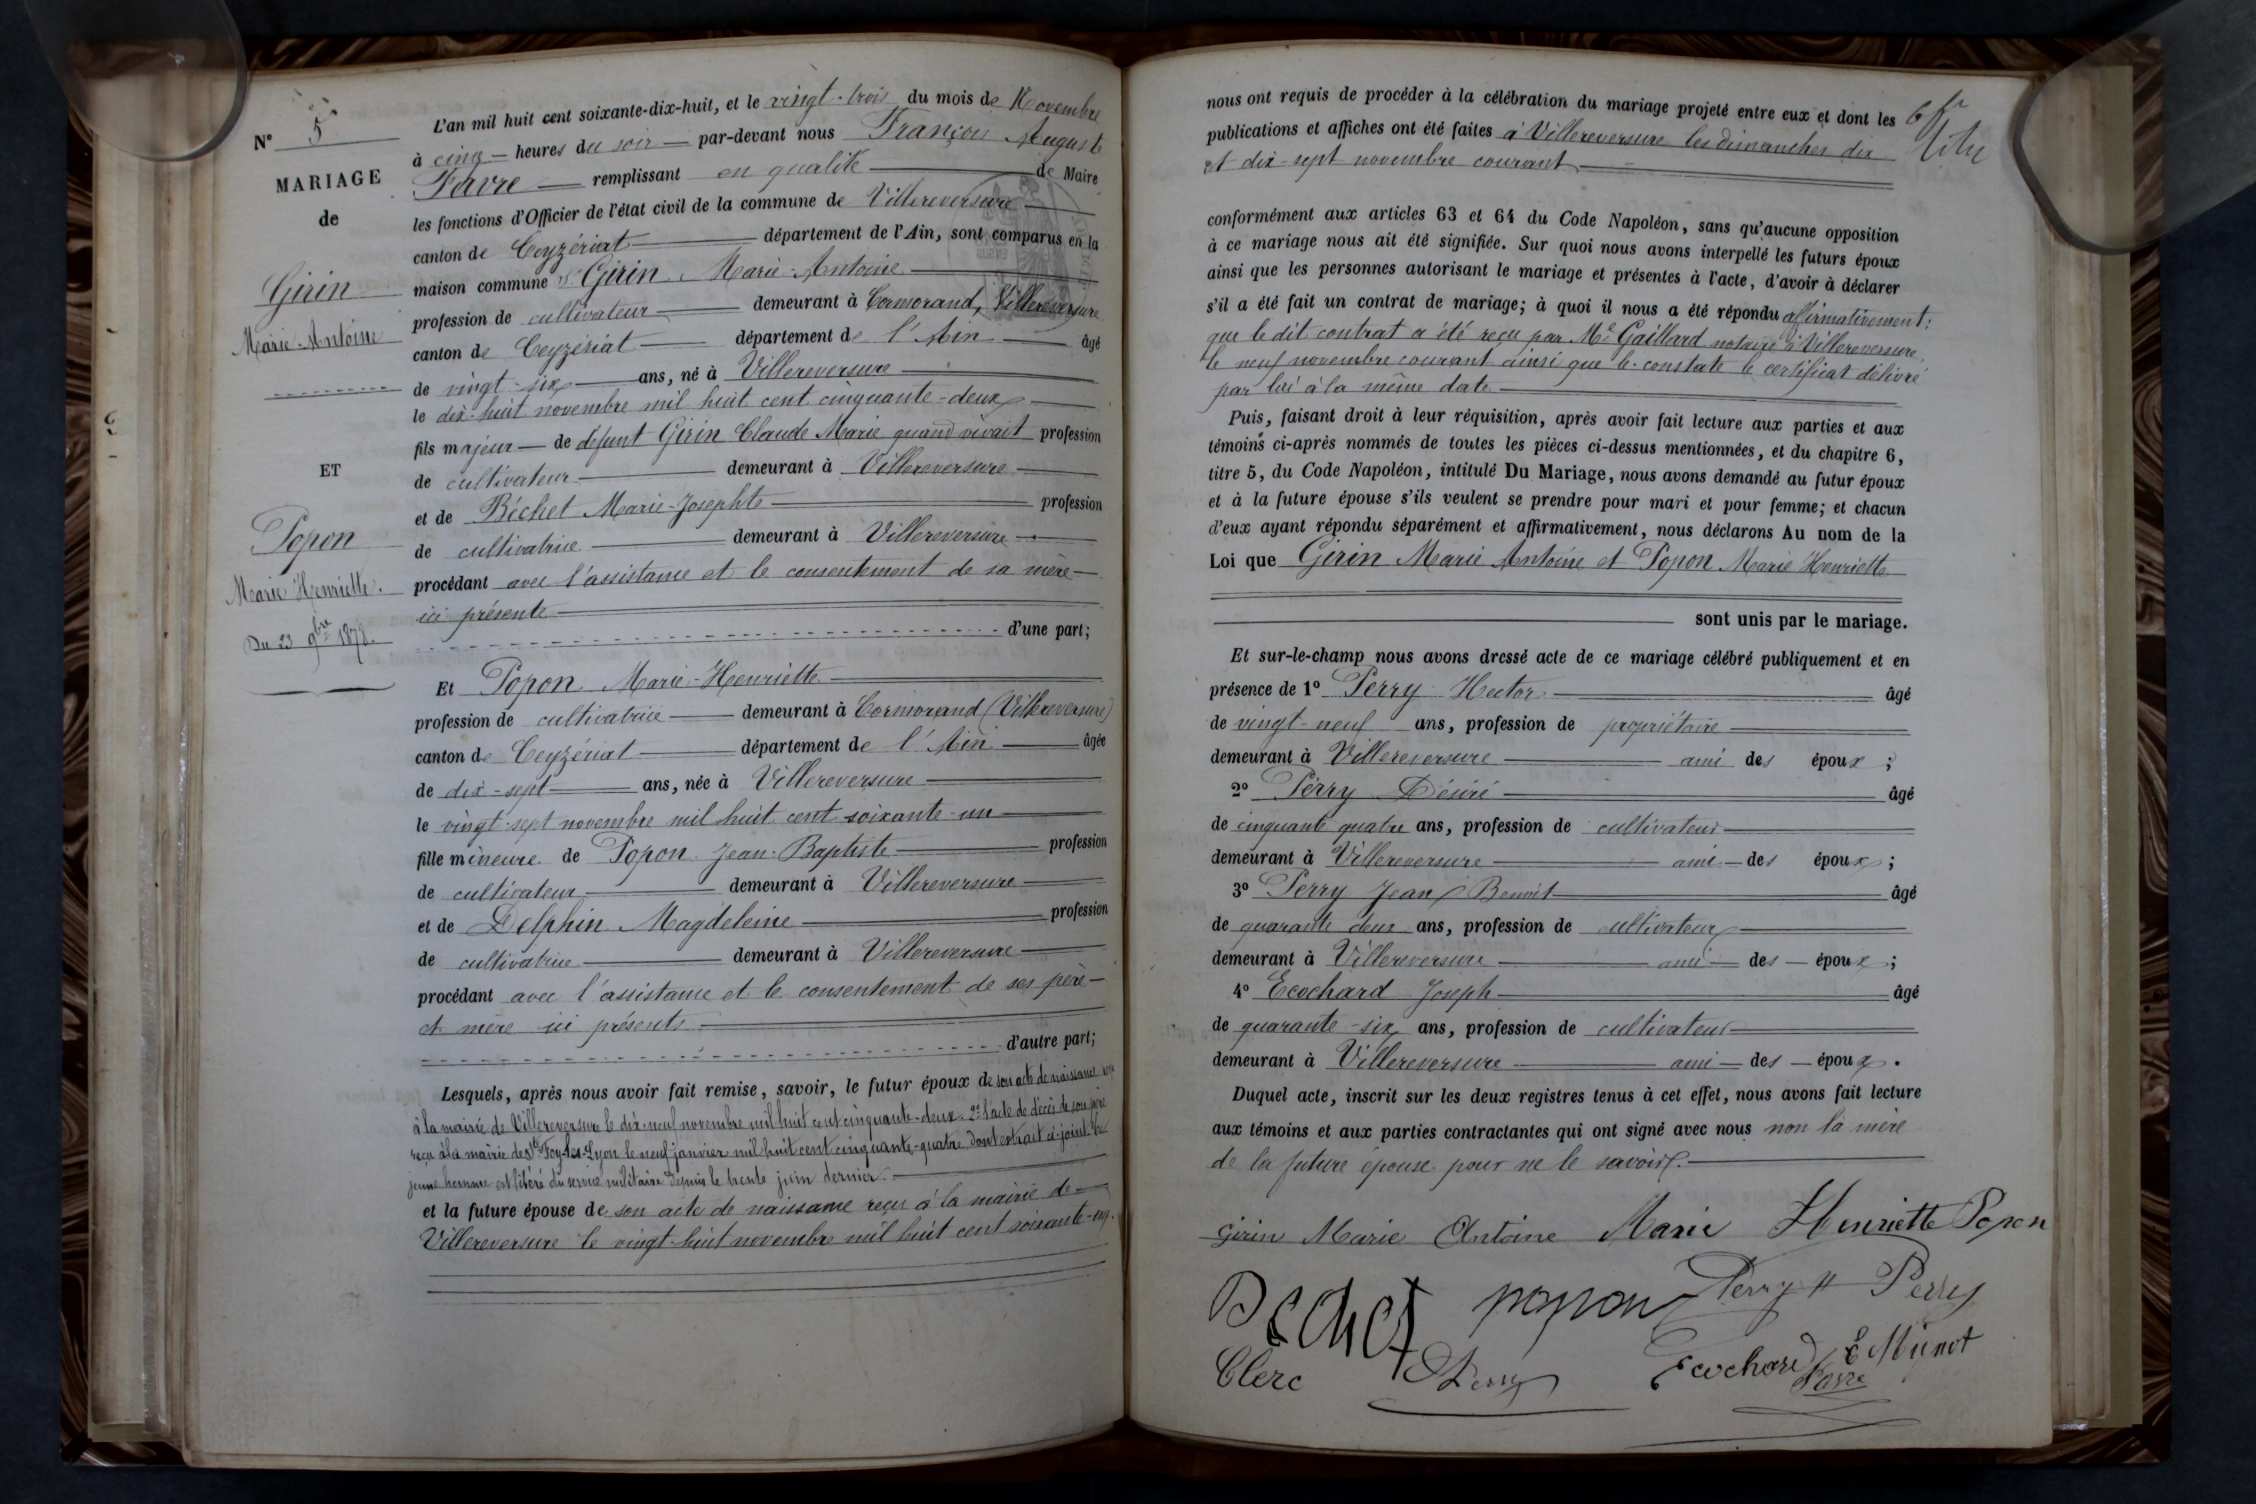 N° 5
MARIAGE
de
Girin
Marie-Antoine
ET
Popon
Marie Henriette.
Du 23 9bre 1878.
L'an mil huit cent soixante-dix-huit, et le vingt-trois du mois de Novembre
à cinq heures du soir par-devant nous François August
Favre remplissant en qualité de Maire
les fonctions d'Officier de l'état civil de la commune de Villereversure
canton de Ceyzériat département de l'Ain, sont comparus en la
maison commune Sr Girin Marie-Antoine
profession de cultivateur demeurant à Cormorand, Villereversure
canton de Ceyzériat département de l'Ain âgé
de vingt-six ans, né à Villereversure
le dix-huit novembre mil huit cent cinquante-deux
fils majeur de défunt Girin Claude Marie quand vivait profession
de cultivateur demeurant à Villereversure
et de Béchet Marie-Josephte profession
de cultivatrice demeurant à Villereversure
procédant avec l'assistance et le consentement de sa mère
ici présente
d'une part;
Et Popon Marie-Henriette
profession de cultivatrice demeurant à Cormorand (Villereversure)
canton de Ceyzériat département de l'Ain âgée
de dix-sept ans, née à Villereversure
le vingt-sept novembre mil huit cent soixante-un
fille mineure de Popon Jean-Baptiste profession
de cultivateur demeurant à Villereversure
et de Delphin Magdeleine profession
de cultivatrice demeurant à Villereversure
procédant avec l'assistance et le consentement de ses père
et mère ici présents
d'autre part;
Lesquels, après nous avoir fait remise, savoir, le futur époux de son acte de naissance reçu
à la mairie de Villereversure le dix-neuf novembre mil huit cent cinquante-deux 2° l'acte de décès de son père
reçu à la mairie de Ste Foy-les-Lyon le neuf janvier mil huit cent cinquante-quatre, dont extrait ci-joint. Le
jeune homme est libéré du service militaire depuis le trente juin dernier.
et la future épouse de son acte de naissance reçu à la mairie de
Villereversure le vingt-huit novembre mil huit cent soixante-un.
nous ont requis de procéder à la célébration du mariage projeté entre eux et dont les
publications et affiches ont été faites à Villereversure les dimanches dix
et dix-sept novembre courant
conformément aux articles 63 et 64 du Code Napoléon, sans qu'aucune opposition
à ce mariage nous ait été signifiée. Sur quoi nous avons interpellé les futurs époux
ainsi que les personnes autorisant le mariage et présentes à l'acte, d'avoir à déclarer
s'il a été fait un contrat de mariage; à quoi il nous a été répondu affirmativement:
que le dit contrat a été reçu par Me Gaillard notaire à Villereversure,
le neuf novembre courant ainsi que le constate le certificat délivré
par lui à la même date
Puis, faisant droit à leur réquisition, après avoir fait lecture aux parties et aux
témoins ci-après nommés de toutes les pièces ci-dessus mentionnées, et du chapitre 6,
titre 5, du Code Napoléon, intitulé Du Mariage, nous avons demandé au futur époux
et à la future épouse s'ils veulent se prendre pour mari et pour femme; et chacun
d'eux ayant répondu séparément et affirmativement, nous déclarons Au nom de la
Loi que Girin Marie Antoine et Popon Marie Henriette
sont unis par le mariage.
Et sur-le-champ nous avons dressé acte de ce mariage célébré publiquement et en
présence de 1° Perry Hector âgé
de vingt-neuf ans, profession de propriétaire
demeurant à Villereversure ami des époux;
2° Perry Désiré âgé
de cinquante quatre ans, profession de cultivateur
demeurant à Villereversure ami des époux;
3° Perry Jean Benoit âgé
de quarante deux ans, profession de cultivateur
demeurant à Villereversure ami des époux;
4° Ecochard Joseph âgé
de quarante-six ans, profession de cultivateur
demeurant à Villereversure ami des époux.
Duquel acte, inscrit sur les deux registres tenus à cet effet, nous avons fait lecture
aux témoins et aux parties contractantes qui ont signé avec nous non la mère
de la future épouse pour ne le savoir.
Girin Marie Antoine Marie Henriette Popon
Bechet popon Perry H Perry
Clerc Perry Ecochard E Munot
Favre